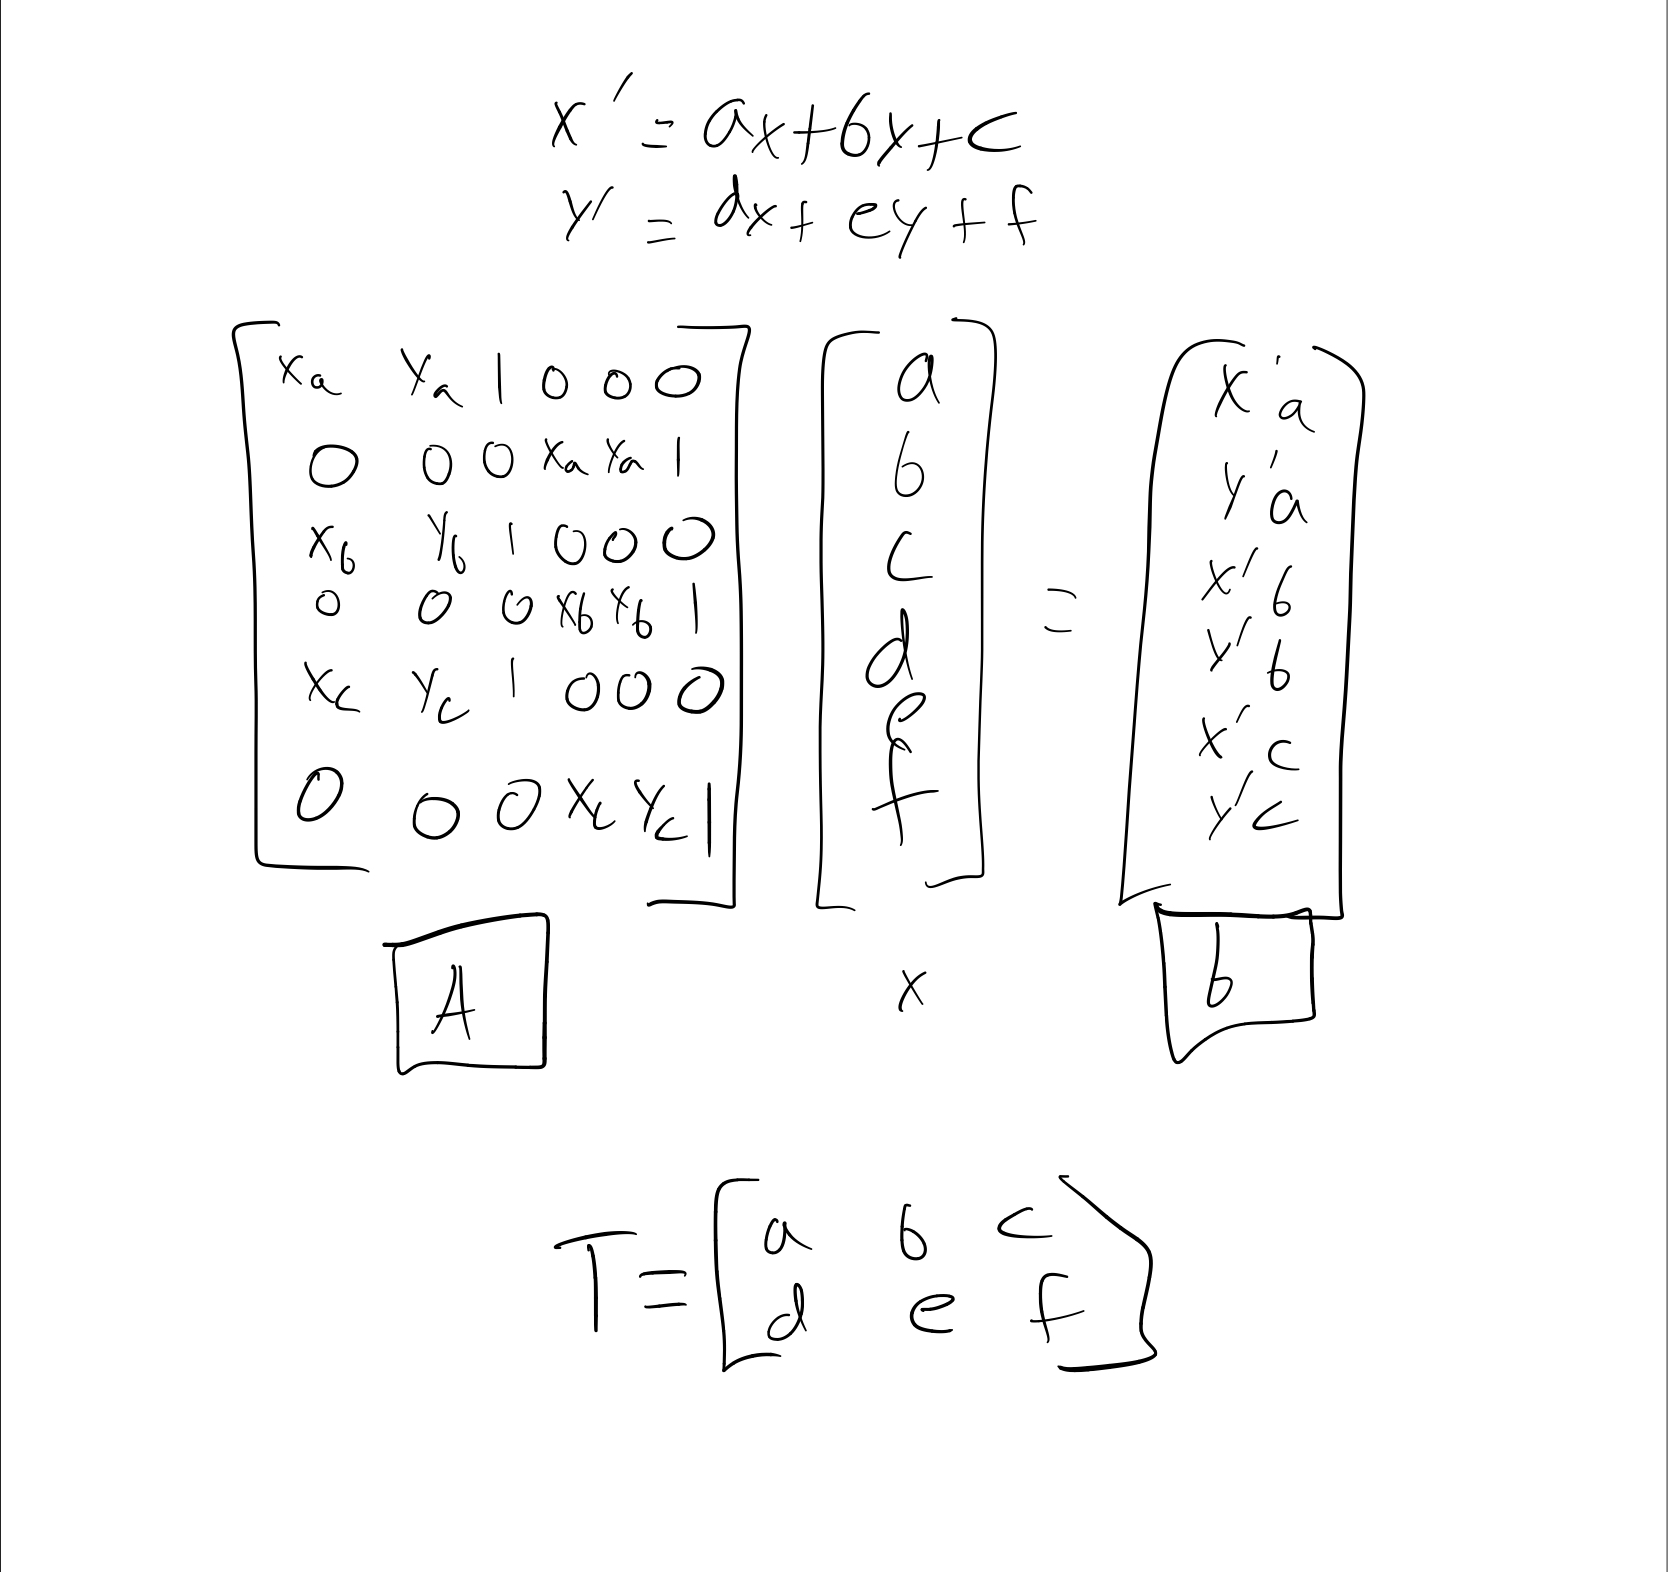 x' = ax+bx+c
y' = dx+ ey + f
xa ya 1 0 0 0
0 0 0 xa ya 1
xb yb 1 0 0 0
0 0 0 xb yb 1
xc yc 1 0 0 0
0 0 0 xc yc 1
a
b
c
d
e
f
=
x'a
y'a
x'b
y'b
x'c
y'c
A x b
T = [a b c
d e f]